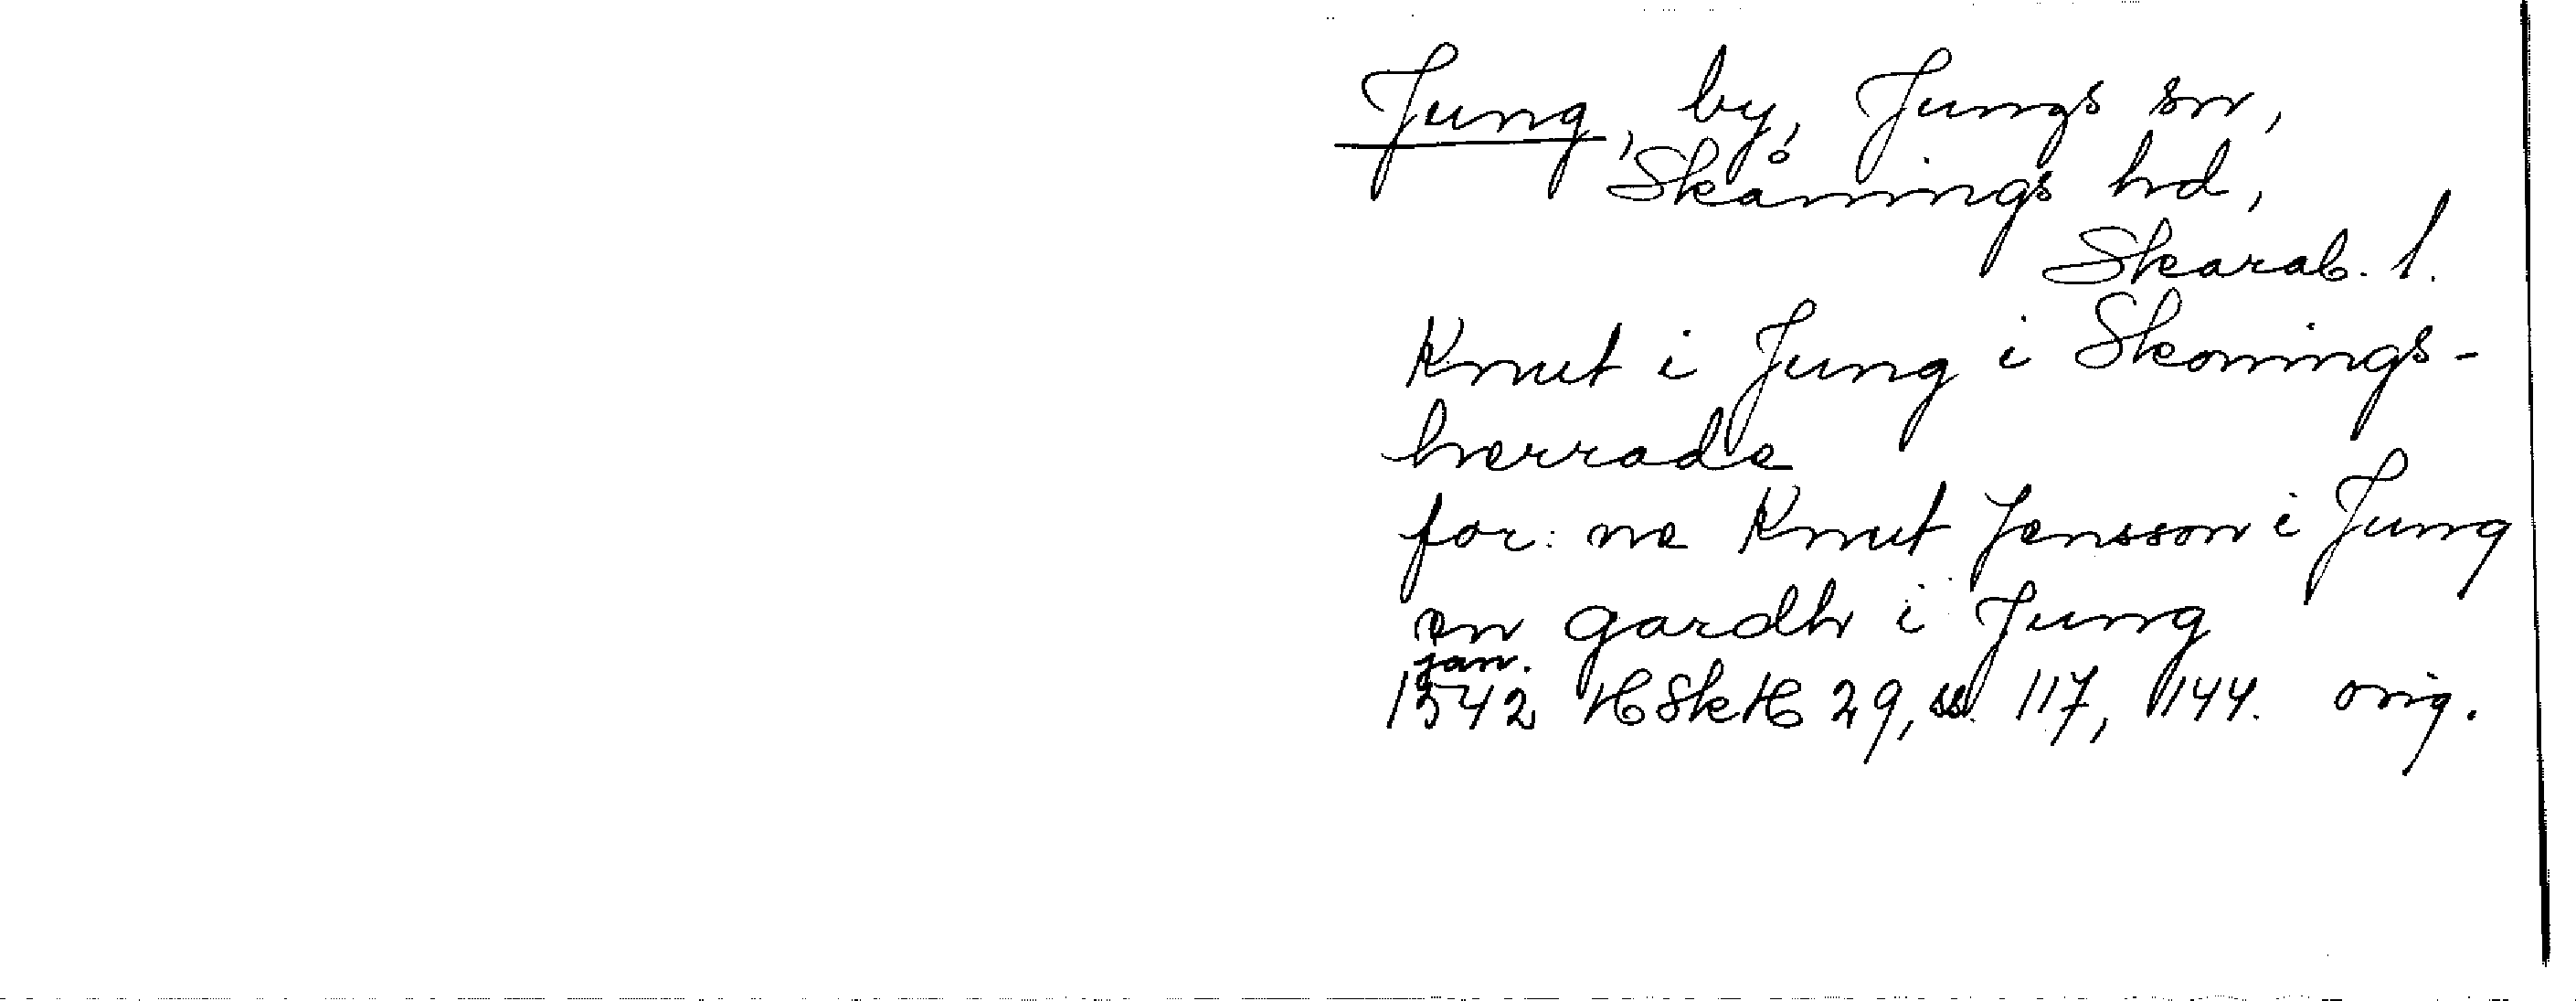 Jung, by, Jungs sn,
Skånings hd,
Skarab. l.
Knut i Jung i Skonings-
herrade
for: ne Knut Jensson i Jung
en gardh i Jung
jan.
1542 HSkH 29, ss. 117, 144. orig.